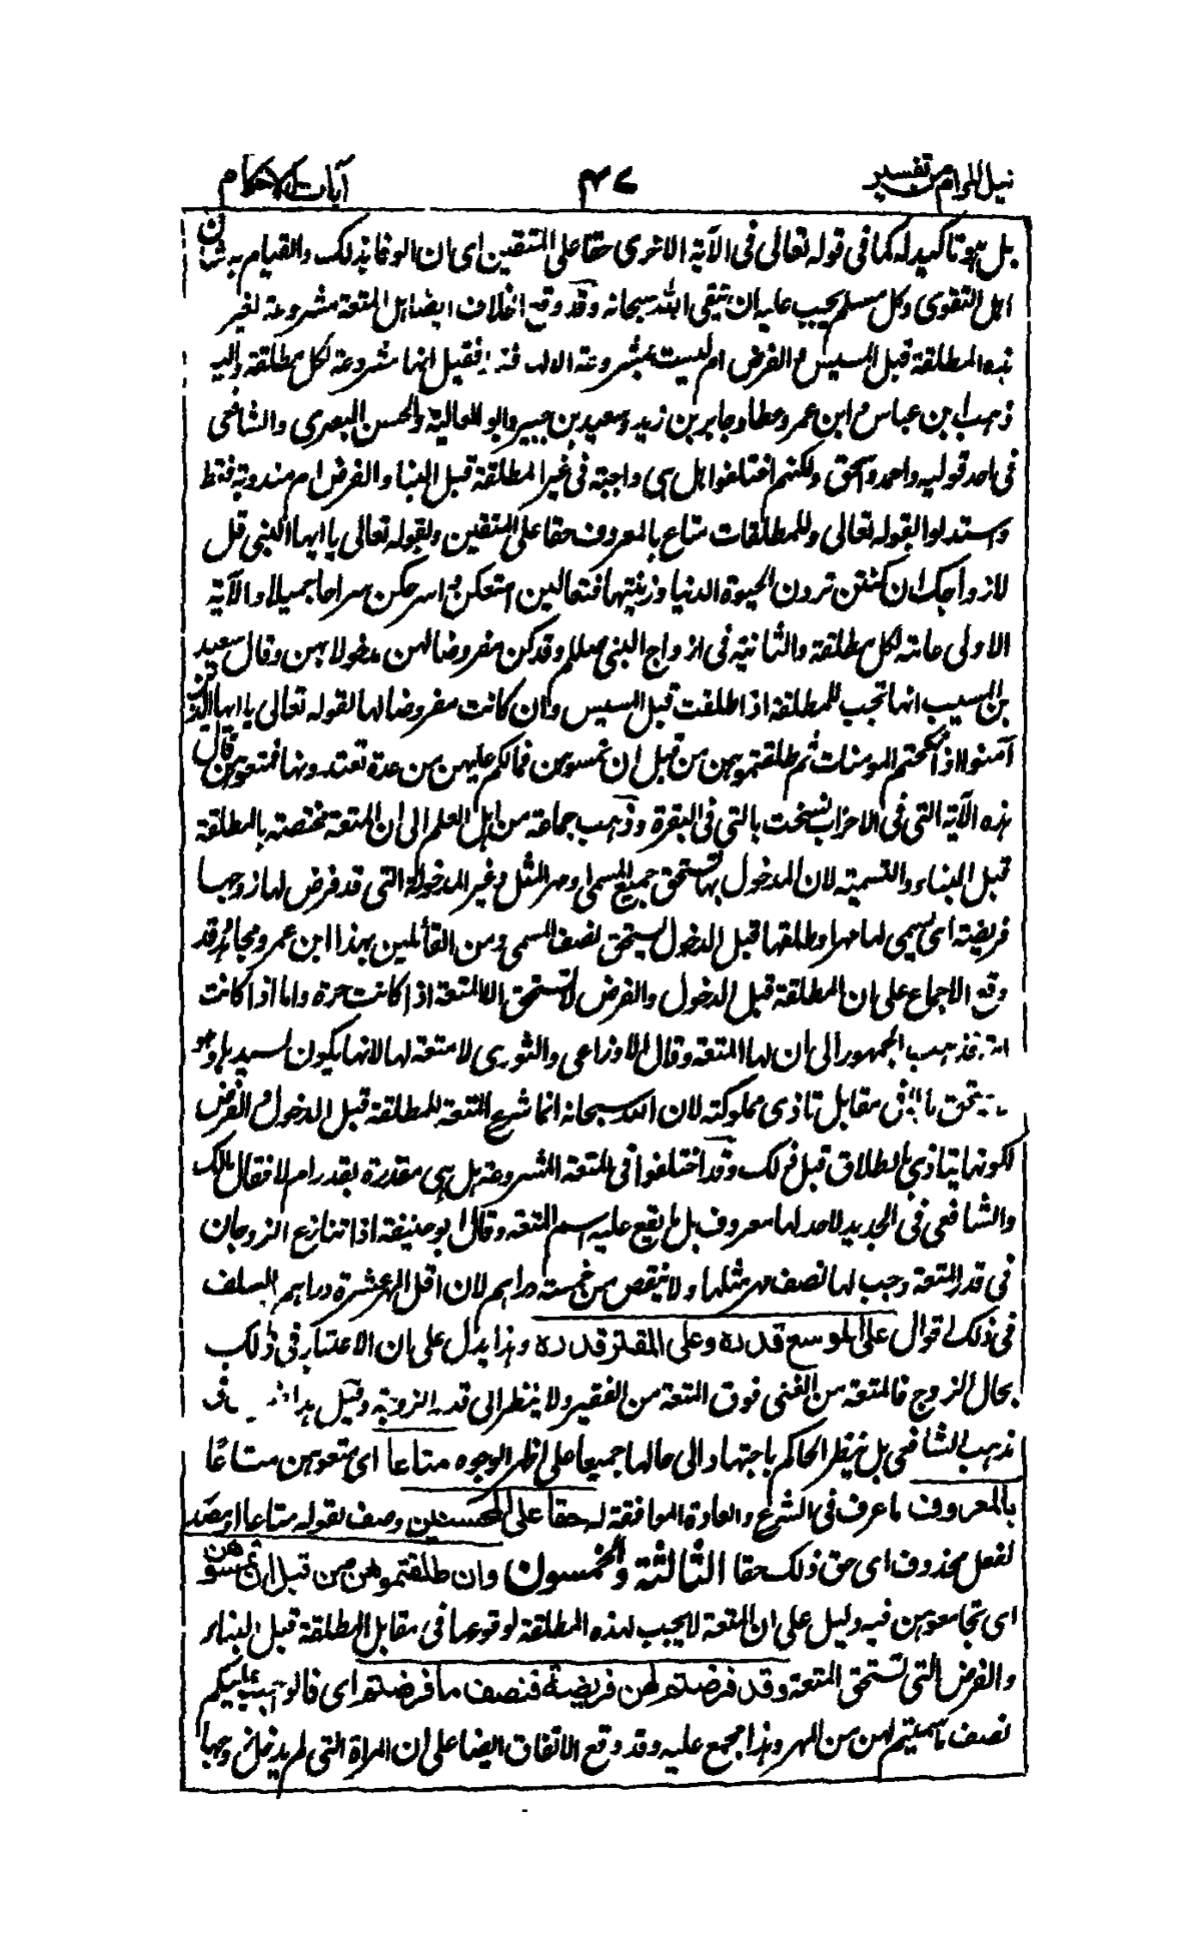 نيل المرام من تفسير
٤٧
آيات الاحكام
بل هو تاكيد له كما في قوله تعالى فى الآية الاخرى حقا على المتقين اى ان الوفا بذلك والقيام به شان
اهل التقوى وكل مسلم يجب عليه ان يتقى الله سبحانه وقد وقع الخلاف ايضا هل المتعة مشروعة لغير
هذه المطلقة قبل المسيس والفرض ام ليست بمشروعة الا لها فقيل انها مشروعة لكل مطلقة واليه
ذهب ابن عباس وابن عمر وعطاء وجابر بن زيد وسعيد بن جبير وابو العالية والحسن البصرى والشافعى
فى احد قوليه واحمد واسحق ولكنهم اختلفوا هل هى واجبة فى غير المطلقة قبل البناء والفرض ام مندوبة فقط
واستدلوا بقوله تعالى وللمطلقات متاع بالمعروف حقا على المتقين وبقوله تعالى يا ايها النبى قل
لازواجك ان كنتن تردن الحيوة الدنيا وزينتها فتعالين امتعكن واسرحكن سراحا جميلا والآية
الاولى عامة لكل مطلقة والثانية فى ازواج النبى صلعم وقد كن مفروضا لهن مدخولا بهن وقال سعيد
بن المسيب انها تجب للمطلقة اذا طلقت قبل المسيس وان كانت مفروضا لها لقوله تعالى يا ايها الذين
آمنوا اذا نكحتم المومنات ثم طلقتموهن من قبل ان تمسوهن فما لكم عليهن من عدة تعتدونها فمتعوهن قال
هذه الآية التى فى الاحزاب نسخت بالتى فى البقرة وذهب جماعة من اهل العلم الى ان المتعة مختصة بالمطلقة
قبل البناء والتسمية لان المدخول بها تستحق جميع المسمى او مهر المثل وغير المدخولة التى قد فرض لها زوجها
فريضة اى سمى لها مهرا وطلقها قبل الدخول تستحق نصف المسمى ومن القائلين بهذا ابن عمر ومجاهد وقد
وقع الاجماع على ان المطلقة قبل الدخول والفرض لا تستحق الا المتعة اذا كانت حرة واما اذا كانت
امة فذهب الجمهور الى ان لها المتعة وقال الاوزاعى والثورى لا متعة لها لانها يكون لسيدها وهو
يستحق مالا فى مقابل تاذى مملوكته لان الله سبحانه انما شرع المتعة للمطلقة قبل الدخول والفرض
لكونها يتاذى بالطلاق قبل ذلك وقد اختلفوا فى المتعة المشروعة هل هى مقدرة بقدر ام لا فقال مالك
والشافعى فى الجديد لا حد لها معروف بل ما يقع عليه اسم المتعة وقال ابو حنيفة اذا تنازع الزوجان
فى قدر المتعة وجب لها نصف مهر مثلها ولا ينقص من خمسة دراهم لان اقل المهر عشرة دراهم للسلف
فى ذلك اقوال على الموسع قدره وعلى المقتر قدره وهذا يدل على ان الاعتبار فى ذلك
بحال الزوج فالمتعة من الغنى فوق المتعة من الفقير ولا ينظر الى قدر الزوجة وقيل
مذهب الشافعى بل ينظر الحاكم باجتهاده الى حالهما جميعا على اظهر الوجوه متاعا اى متعوهن متاعًا
بالمعروف ما عرف فى الشرع والعادة الموافقة له حقا على المحسنين وصف لقوله متاعا او مصدر
لفعل محذوف اى حق ذلك حقا الثالثة والخمسون وان طلقتموهن من قبل ان تمسوهن
اى تجامعوهن فيه دليل على ان المتعة لا يجب لهذه المطلقة لوقوعها فى مقابل المطلقة قبل البناء
والفرض التى تستحق المتعة وقد فرضتم لهن فريضة فنصف ما فرضتم اى فالواجب عليكم
نصف ما سميتم لهن من المهر وهذا مجمع عليه وقد وقع الاتفاق ايضا على ان المراة التى لم يدخل زوجها